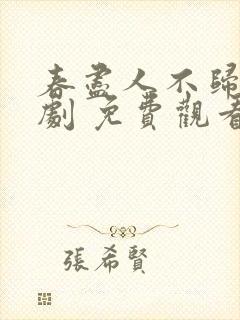 春盡人不歸
劇 免費觀看
張希賢